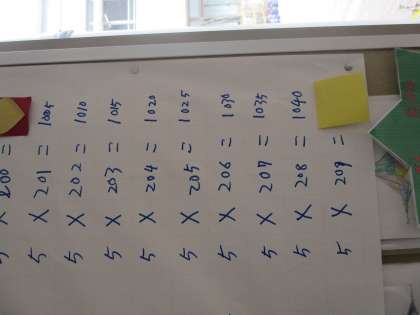 5 X 200 =
5 X 201 = 1005
5 X 202 = 1010
5 X 203 = 1015
5 X 204 = 1020
5 X 205 = 1025
5 X 206 = 1030
5 X 207 = 1035
5 X 208 = 1040
5 X 209 =